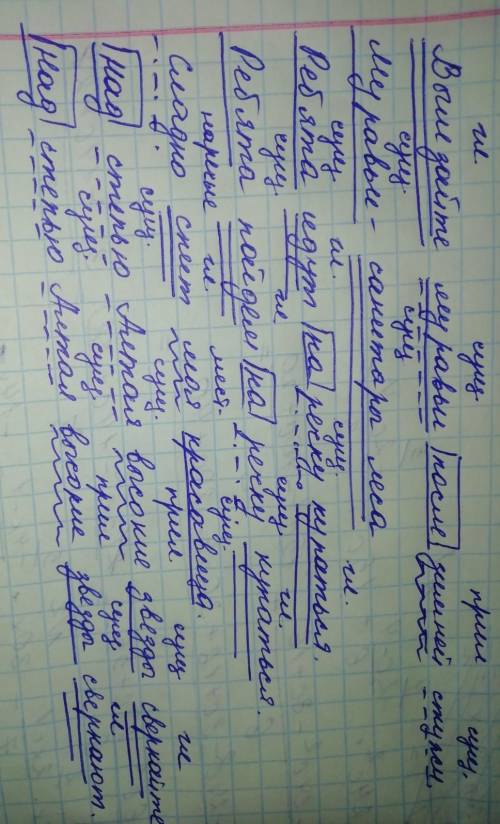 гл. сущ прил сущ.
Выледайте муравьи после зимней стужи
сущ. сущ сущ
Муравьи - санитары леса
сущ гл. сущ. гл.
Ребята идут на речку купаться.
сущ. гл сущ. гл.
Ребята пойдем на речку купаться.
наречие гл. мест. сущ.
Сладно спит моя красавица.
сущ. сущ. прил сущ гл
Над степью Алтая высокие звезды сверкайте
сущ. сущ прил сущ гл
Над степью Алтая высокие звезды сверкают.